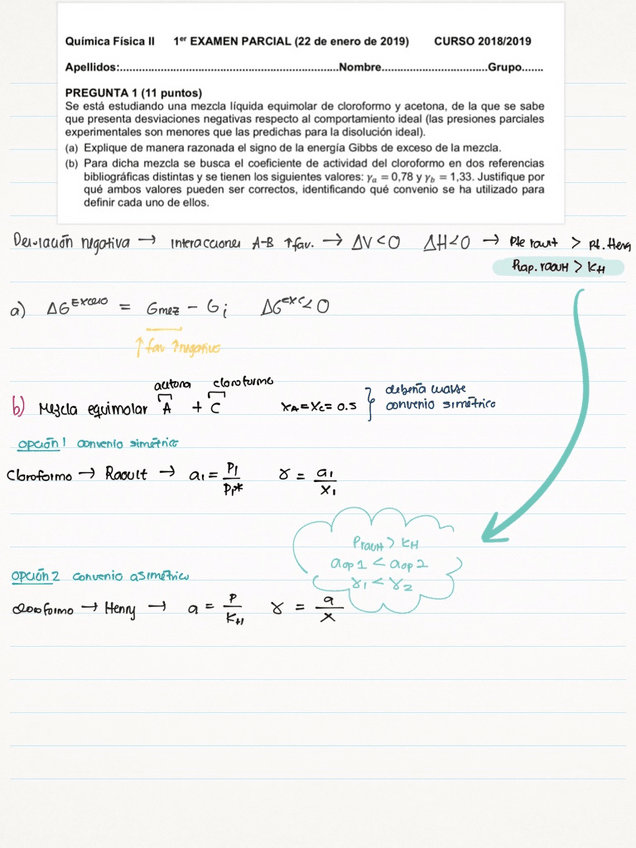 Química Física II 1er EXAMEN PARCIAL (22 de enero de 2019) CURSO 2018/2019
Apellidos:.....................................................................Nombre.................................Grupo.......
PREGUNTA 1 (11 puntos)
Se está estudiando una mezcla líquida equimolar de cloroformo y acetona, de la que se sabe
que presenta desviaciones negativas respecto al comportamiento ideal (las presiones parciales
experimentales son menores que las predichas para la disolución ideal).
(a) Explique de manera razonada el signo de la energía Gibbs de exceso de la mezcla.
(b) Para dicha mezcla se busca el coeficiente de actividad del cloroformo en dos referencias
bibliográficas distintas y se tienen los siguientes valores: γa = 0,78 y γb = 1,33. Justifique por
qué ambos valores pueden ser correctos, identificando qué convenio se ha utilizado para
definir cada uno de ellos.
Desviación negativa → interacciones A-B ↑fav. → ΔV<0 ΔH<0 → Ple raoult > Pl. Henry
Pvap. raoult > KH
a) ΔG Exceso = Gmez - Gi ΔG exc<0
↑ fav ↑negativo
acetona cloroformo
b) Mezcla equimolar A + C xA=xC= 0.5
debería usarse
convenio simétrico
opción 1 convenio simétrico
Cloroformo → Raoult → a1 = P1/P1* γ = a1/x1
Praoult > KH
aop1 < aop2
γ1 < γ2
opción 2 convenio asimétrico
cloroformo → Henry → a = P/KH γ = a/x